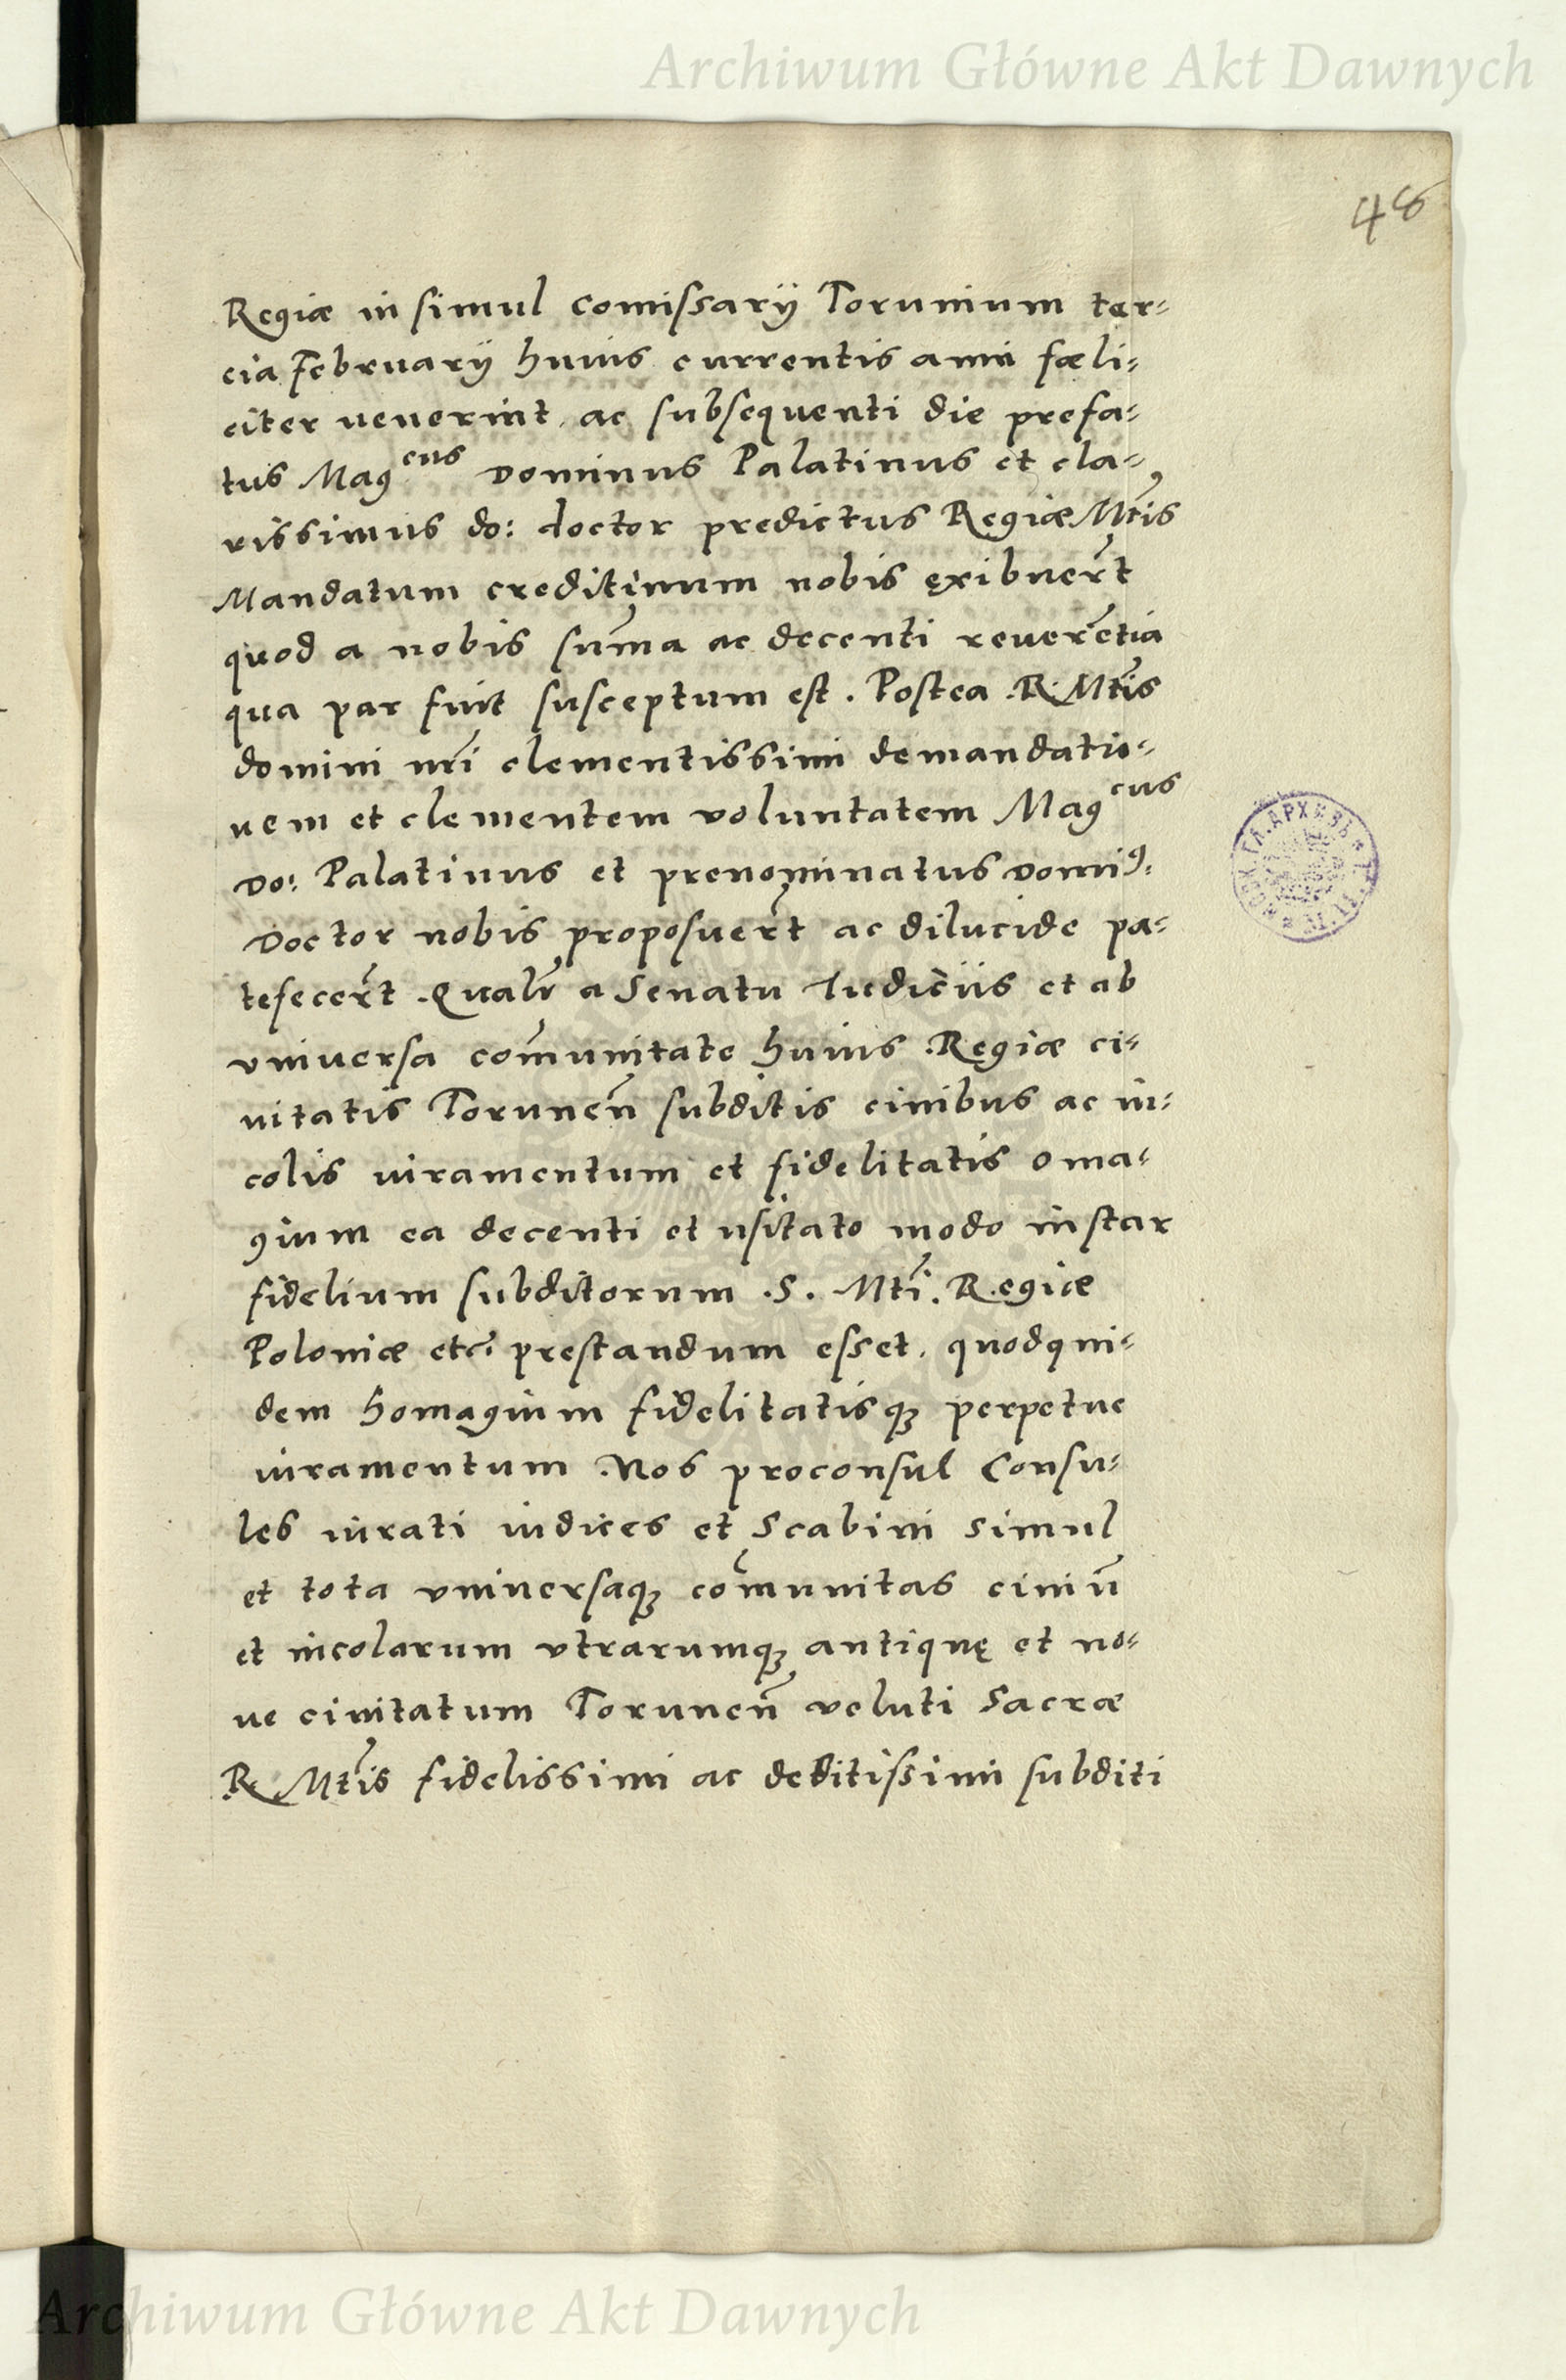 Archiwum Główne Akt Dawnych
48
Regiæ in simul comissarÿ Torunium ter=
cia Februarÿ huius currentis anni fœli=
citer uenerint, ac subsequenti die prefa=
tus Mag^cus Dominus Palatinus et cla=
rissimus do: doctor predictus Regiæ Mt̃is
Mandatum creditiuum nobis exibuer̃t
quod a nobis sum̃a ac decenti reuerẽtia
qua par fuit susceptum est. Postea .R. Mt̃is
domini nr̃i clementissimi demandatio=
nem et clementem voluntatem Mag^cus
Do: Palatinus et prenominatus Domi9:
Doctor nobis proposuer̃t ac dilucide pa=
tefecer̃t. Qualr̃ a Senatu Iudicÿs et ab
vniuersa com̃unitate huius Regiæ ci=
uitatis Torunen̄ subditis ciuibus ac in=
colis iuramentum et fidelitatis oma=
gium ea decenti et usitato modo instar
fidelium subditorum .S. Mt̃i. Regiæ
Poloniæ etc̃. prestandum esset, quodqui=
dem homagium fidelitatisqꝫ perpetue
iuramentum Nos proconsul Consu=
les iurati iudices et Scabini simul
et tota vniuersaqꝫ com̃unitas ciuiū
et incolarum vtrarumqꝫ antiquę et no=
ue ciuitatum Torunen̄ veluti Sacræ
R Mt̃is fidelissimi ac deditissimi subditi
Archiwum Główne Akt Dawnych